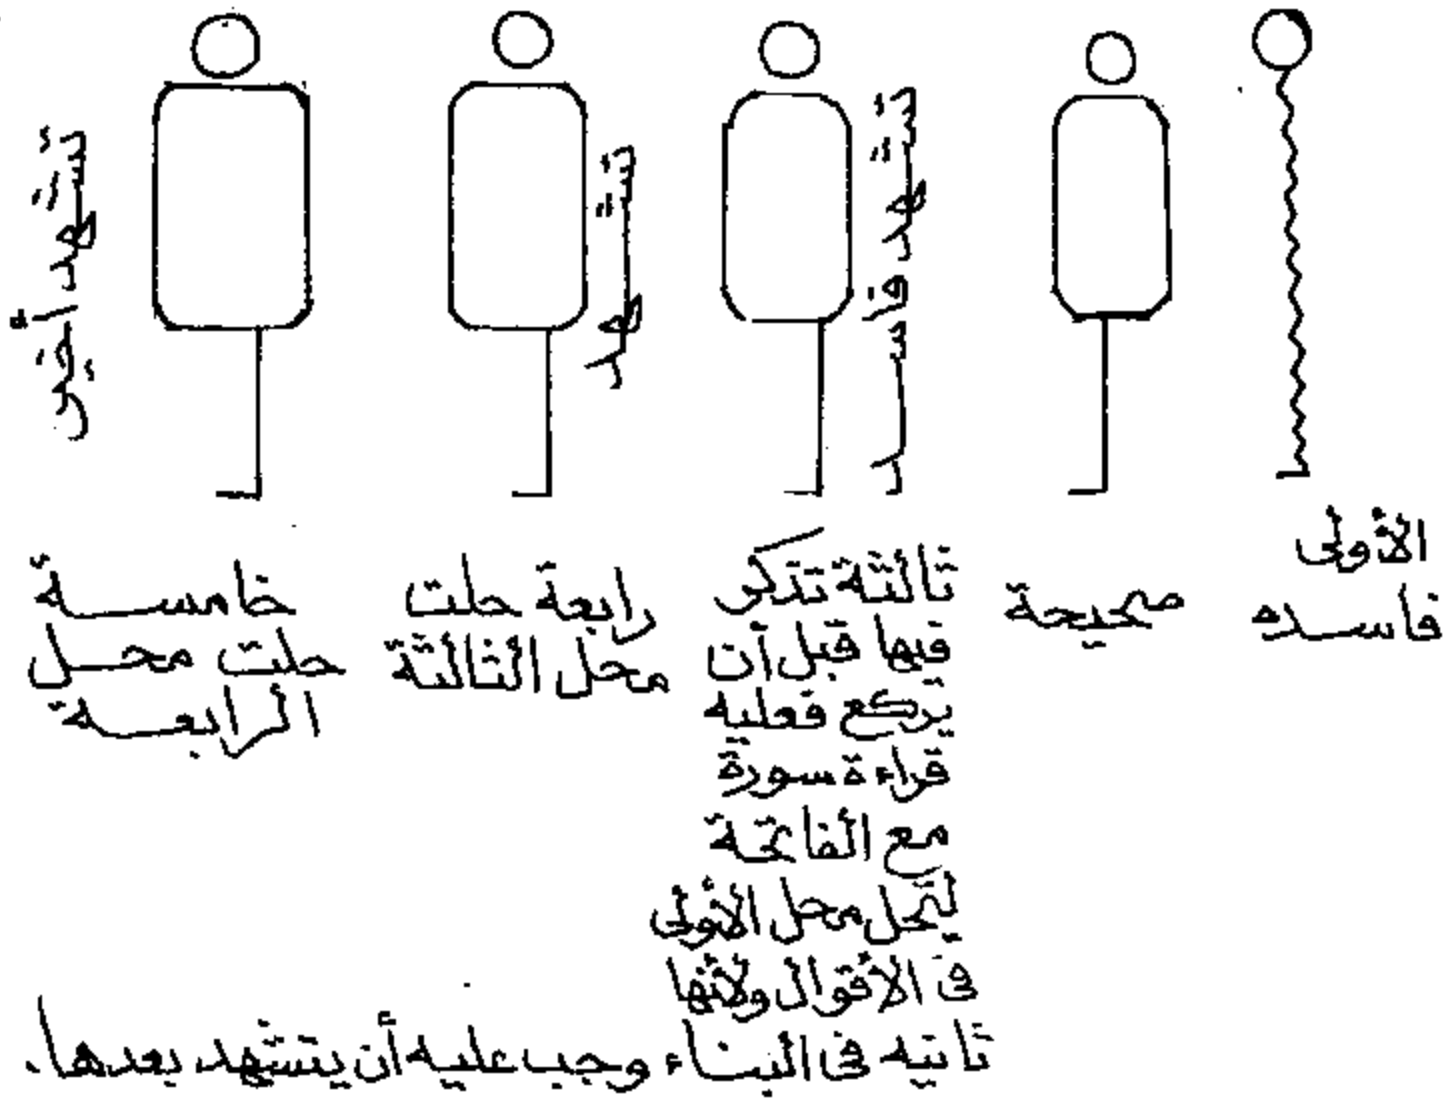 تشهد فاسد
تشهد
تشهد أخير
الأولى
فاسده
صحيحة
ثالثة تذكر
فيها قبل أن
يركع فعليه
قراءة سورة
مع الفاتحة
لتحل محل الأولى
في الأقوال ولأنها
ثانيه في البناء وجب عليه أن يتشهد بعدها.
رابعة حلت
محل الثالثة
خامسة
حلت محل
الرابعة